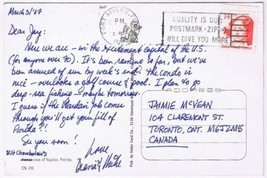 March 31/89
Dear Jay:
Here we are - in the excitement capital of the U.S.
(for anyone over 90). It's been raining so far, but we've
been assured of sun by week's end. The condo is
nice - overlooks a golf course & pool. I plan to go
deep sea fishing - maybe tomorrow.
I guess if the job comes
through you'll get your fill of
Florida!!
See you soon!
Love
QUALITY IS OUR
POSTMARK - ZIP+4
WILL GIVE YOU MORE
JAIMIE McVEAN
104 CLAREMONT ST.
TORONTO, ONT. M6J2M5
CANADA
of Naples, Florida.